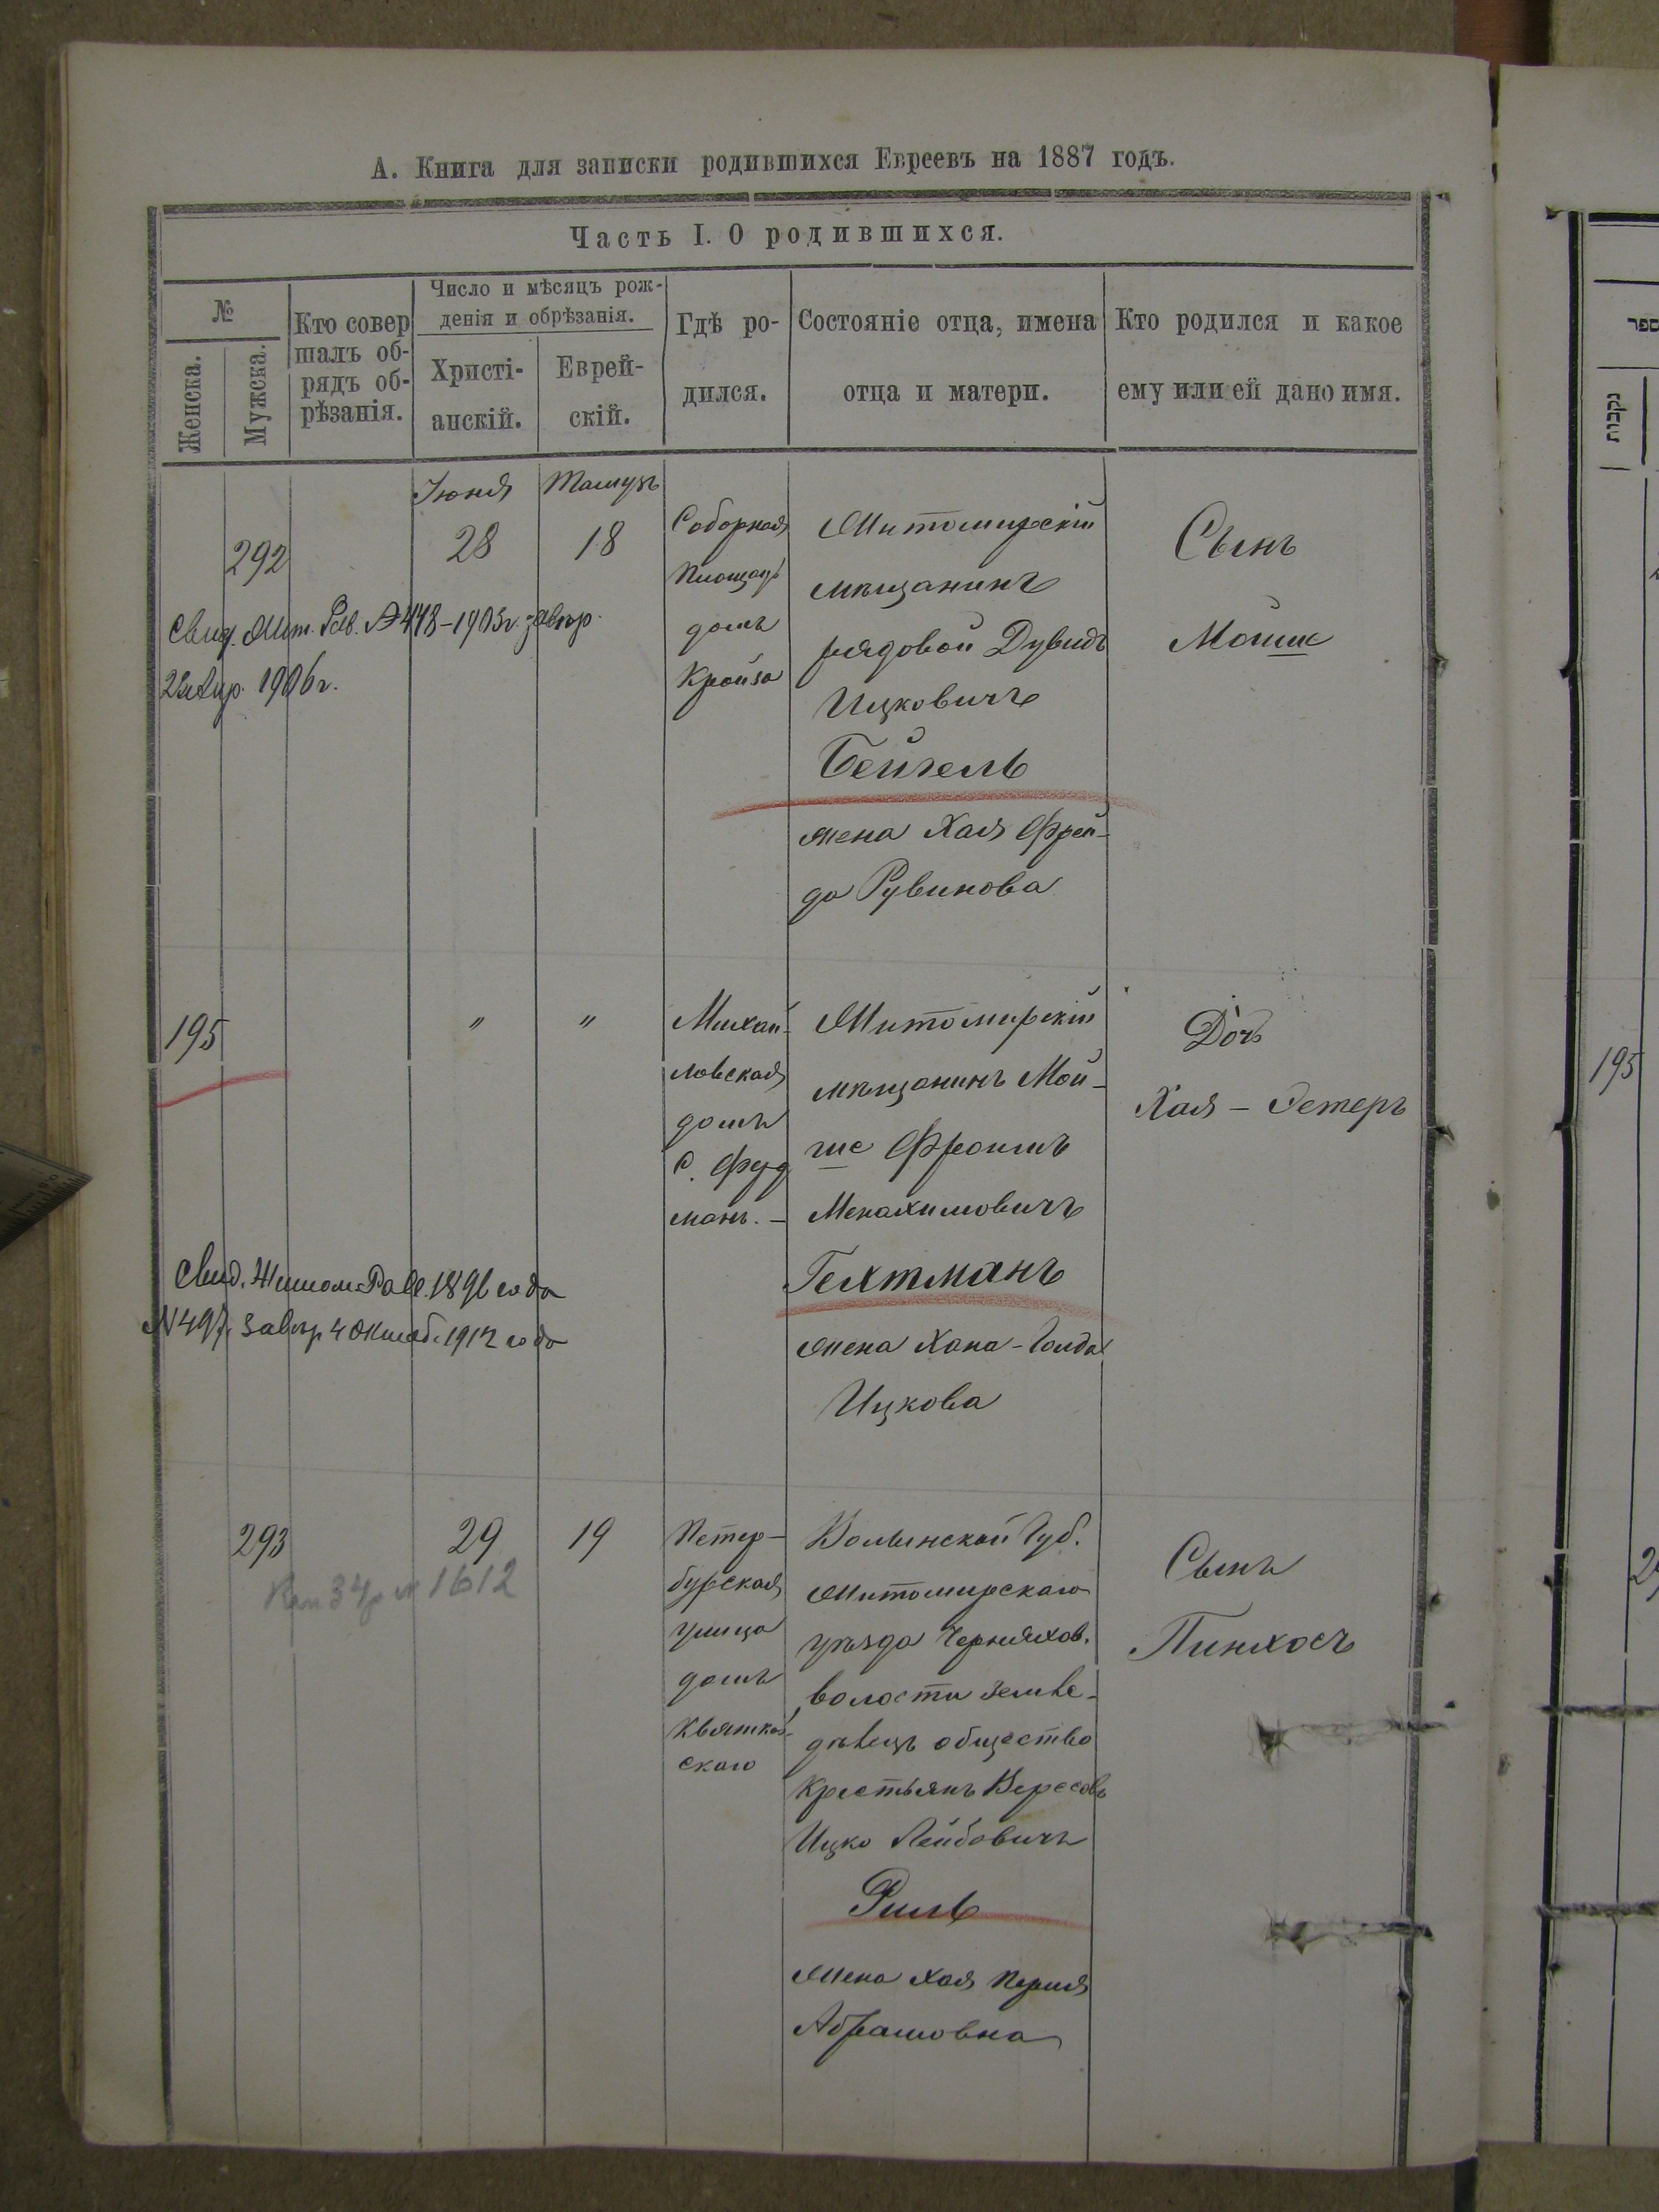 А. Книга для записки родившихся Евреевъ на 1887 годъ.
Часть I. О родившихся.
№
Женска.
Мужска.
Кто совер
шалъ об-
рядъ об-
рѣзанія.
Число и мѣсяцъ рож-
денія и обрѣзанія.
Христі-
анскій.
Еврей-
скій.
Гдѣ ро-
дился.
Состояніе отца, имена
отца и матери.
Кто родился и какое
ему или ей дано имя.
292
Іюня
28
Тамузъ
18
Соборная
Площадь
домъ
Кройза
Житомирскій
мѣщанинъ
рядовой Дувидъ
Ицковичъ
Бейгель
жена Хая Фрей-
да Рувинова
Сынъ
Мошше
Свид. Жит. Рав. № 448-1903г. завѣр.
1906г.
195
"
"
Михай-
ловская
домъ
С. Фуд
манъ. -
Житомирскій
мѣщанинъ Мой-
ше Фроимъ
Менахимовичъ
Гехтманъ
жена Хана-Голда
Ицкова
Дочь
Хая - Эстеръ
Свид. Житом. Рав. 1896 года
№ 497, завѣр 4 Октяб. 1912 года
293
29
19
1612
Петер-
бурская
улица
домъ
Квятков-
скаго
Волынской Губ.
Житомирскаго
уѣзда Черняхов.
волости земле-
дѣлецъ общество
Крестьянъ Вересовъ
Ицко Лейбовичъ
Риль
Жена Хая Перля
Абрамовна
Сынъ
Пинхосъ
ספר
נקבות
195